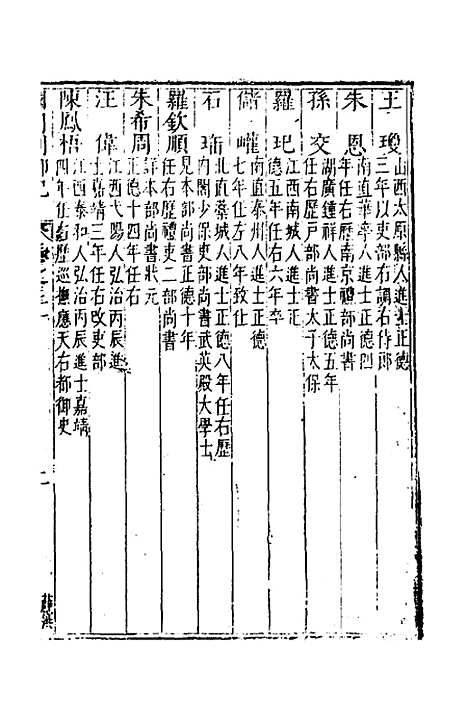 王瓊 山西太原縣人進士正德
三年以吏部右調右侍郎
朱恩 南直華亭人進士正德四
年任右歷南京禮部尚書
孫交 湖廣鍾祥人進士正德五年
任右歷戶部尚書太子太保
羅玘 江西南城人進士正
德五年任右六年卒
儲巏 南直泰州人進士正德
七年任左八年致仕
石珤 北直藁城人進士正德八年任右歷
內閣少保吏部尚書武英殿大學士
羅欽順 見本部尚書正德十年
任右歷禮吏二部尚書
朱希周 詳本部尚書狀元
正德十四年任右
汪偉 江西弋陽人弘治丙辰進
士嘉靖三年任右改吏部
陳鳳梧 江西泰和人弘治丙辰進士嘉靖
四年任右歷巡撫應天右都御史
國朝列卿紀 卷之三十